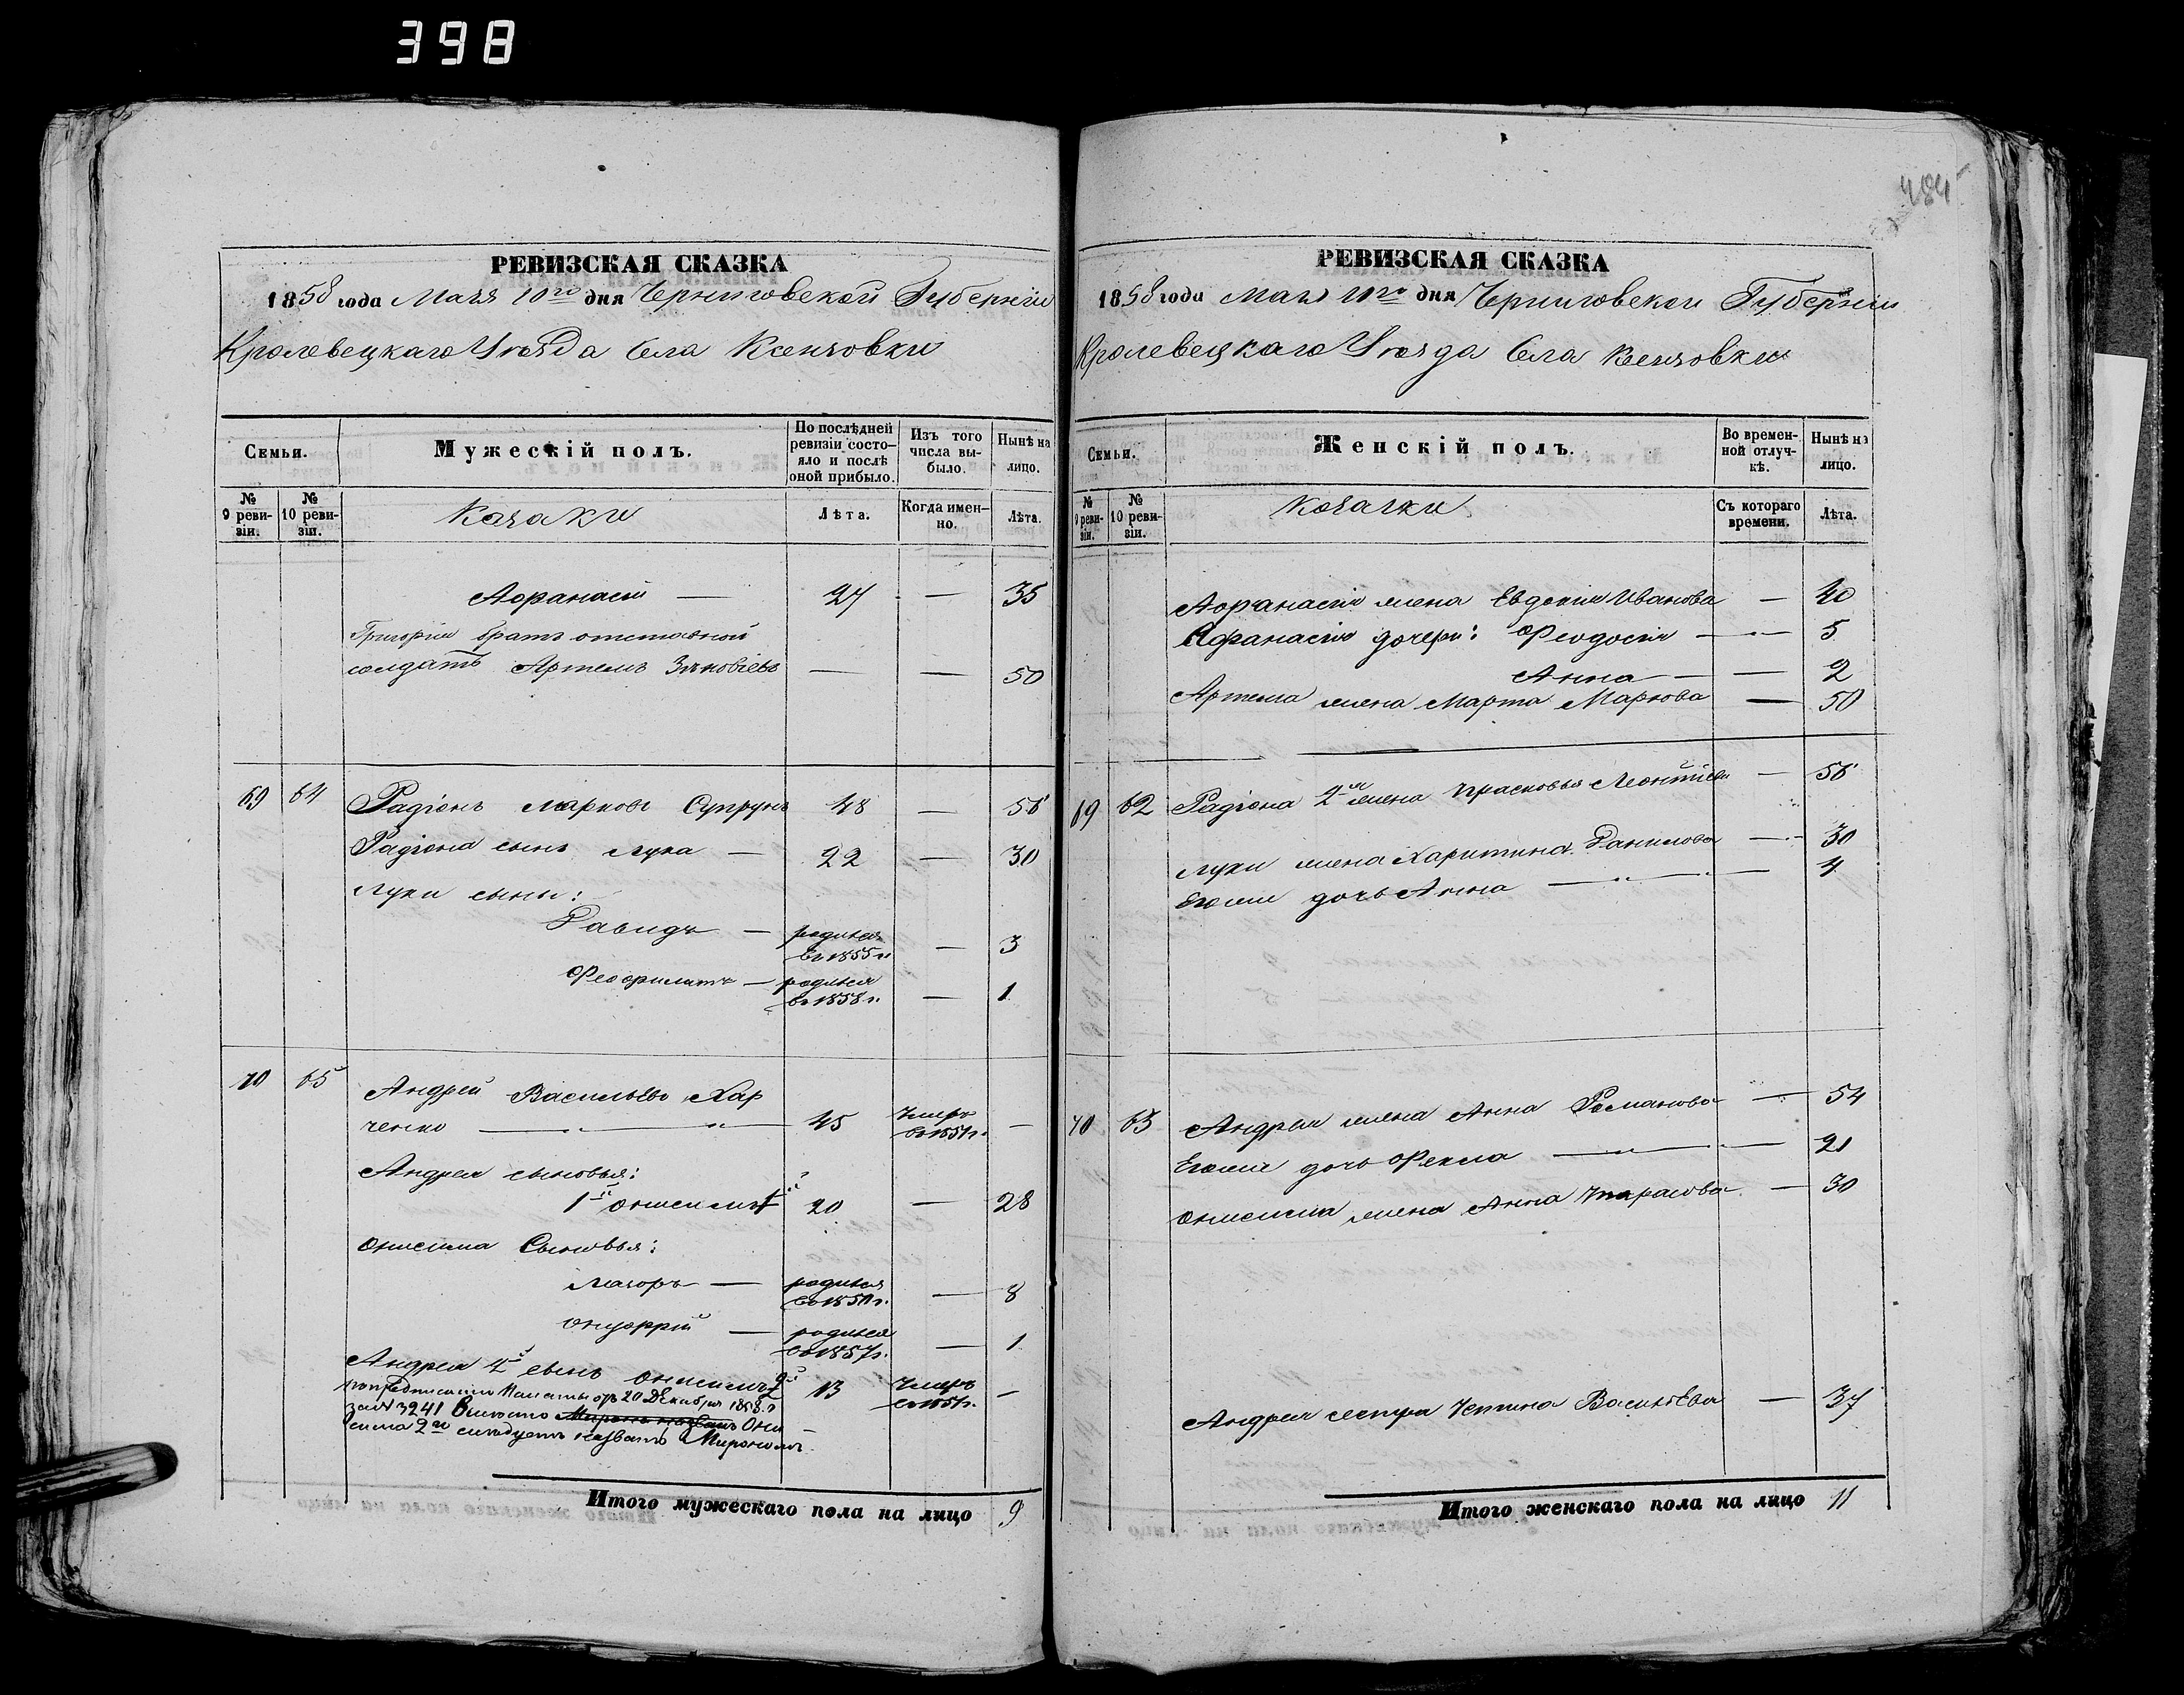 398
484
РЕВИЗСКАЯ СКАЗКА
1858 года Мая 10го дня Черниговской Губернии
Кролевецкаго Уезда Села Ксензовки
Семьи.
Мужескій полъ.
По послѣдней ревизіи состо-
яло и послѣ
оной прибыло.
Изъ того
числа вы-
было.
Нынѣ на
лицо.
№
9 реви-
зіи.
№
10 реви-
зіи.
Козаки
Лѣта.
Когда имен-
но.
Лѣта.
Афанасій — 27 — 35
Григорія братъ отставной
солдатъ Артемъ Зѣновіевъ — — 50
69 64 Радіонъ Марковъ Супрунъ 48 — 56
Радіона сынъ Лука — 22 — 30
Луки сыны:
Давидъ — родился
въ 1855 г. — 3
Феофилактъ — родился
въ 1858 г. — 1
70 65 Андрей Васильевъ Хар
ченко — 45 Умеръ
въ 1851 г. —
Андрея сыновья:
1й Онисимъ 1й 20 — 28
Онисима Сыновья:
Назоръ — родился
въ 1850 г. — 8
Онуфрій — родился
въ 1857 г. — 1
Андрея 2й сынъ Онисимъ 2й 13 Умеръ
въ 1851 г. —
по предписанию Палаты отъ 20 Декабря 1858 г
за № 3241 Вместо Миронъ Они
сима 2го следуетъ назвать Мирономъ.
Итого мужескаго пола на лицо 9
РЕВИЗСКАЯ СКАЗКА
1858 года Мая 10го дня Черниговской Губернии
Кролевецкаго Уезда Села Ксензовки
Семьи.
Женскій полъ.
Во времен-
ной отлуч-
кѣ.
Нынѣ на
лицо.
№
9 реви-
зіи.
№
10 реви-
зіи.
Козачки
Съ котораго
времени.
Лѣта.
Афанасія жена Евдокия Иванова — 40
Афанасія дочери: Феодосія — 5
Анна — — 2
Артема жена Марта Маркова — 50
69 62 Радіона 2я жена Прасковья Леонтіева — 56
Луки жена Харитина Данилова — 30
Его же дочь Анна — 4
70 63 Андрея жена Анна Романова — 54
Его же дочь Фекла — 21
Онисима жена Анна Тарасова — 30
Андрея сестра Устина Васильева — 37
Итого женскаго пола на лицо 11